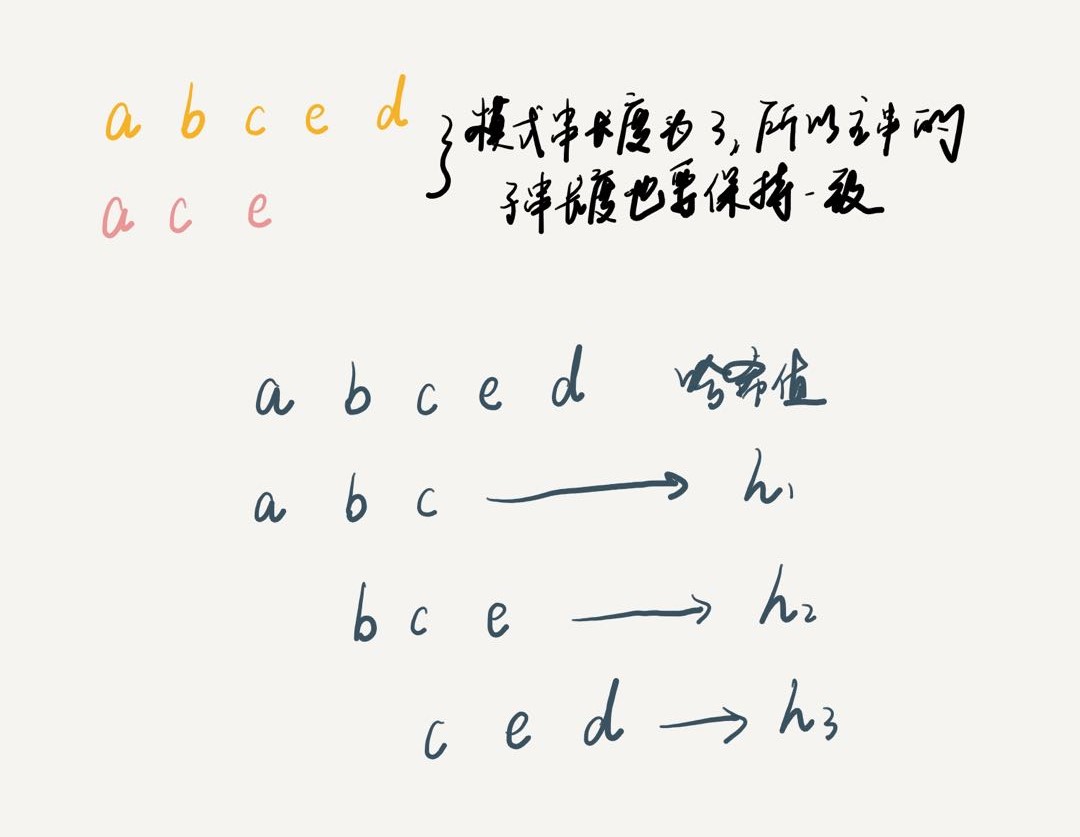 a b c e d
a c e
模式串长度为3,所以主串的
子串长度也要保持一致
a b c e d 哈希值
a b c → h₁
b c e → h₂
c e d → h₃